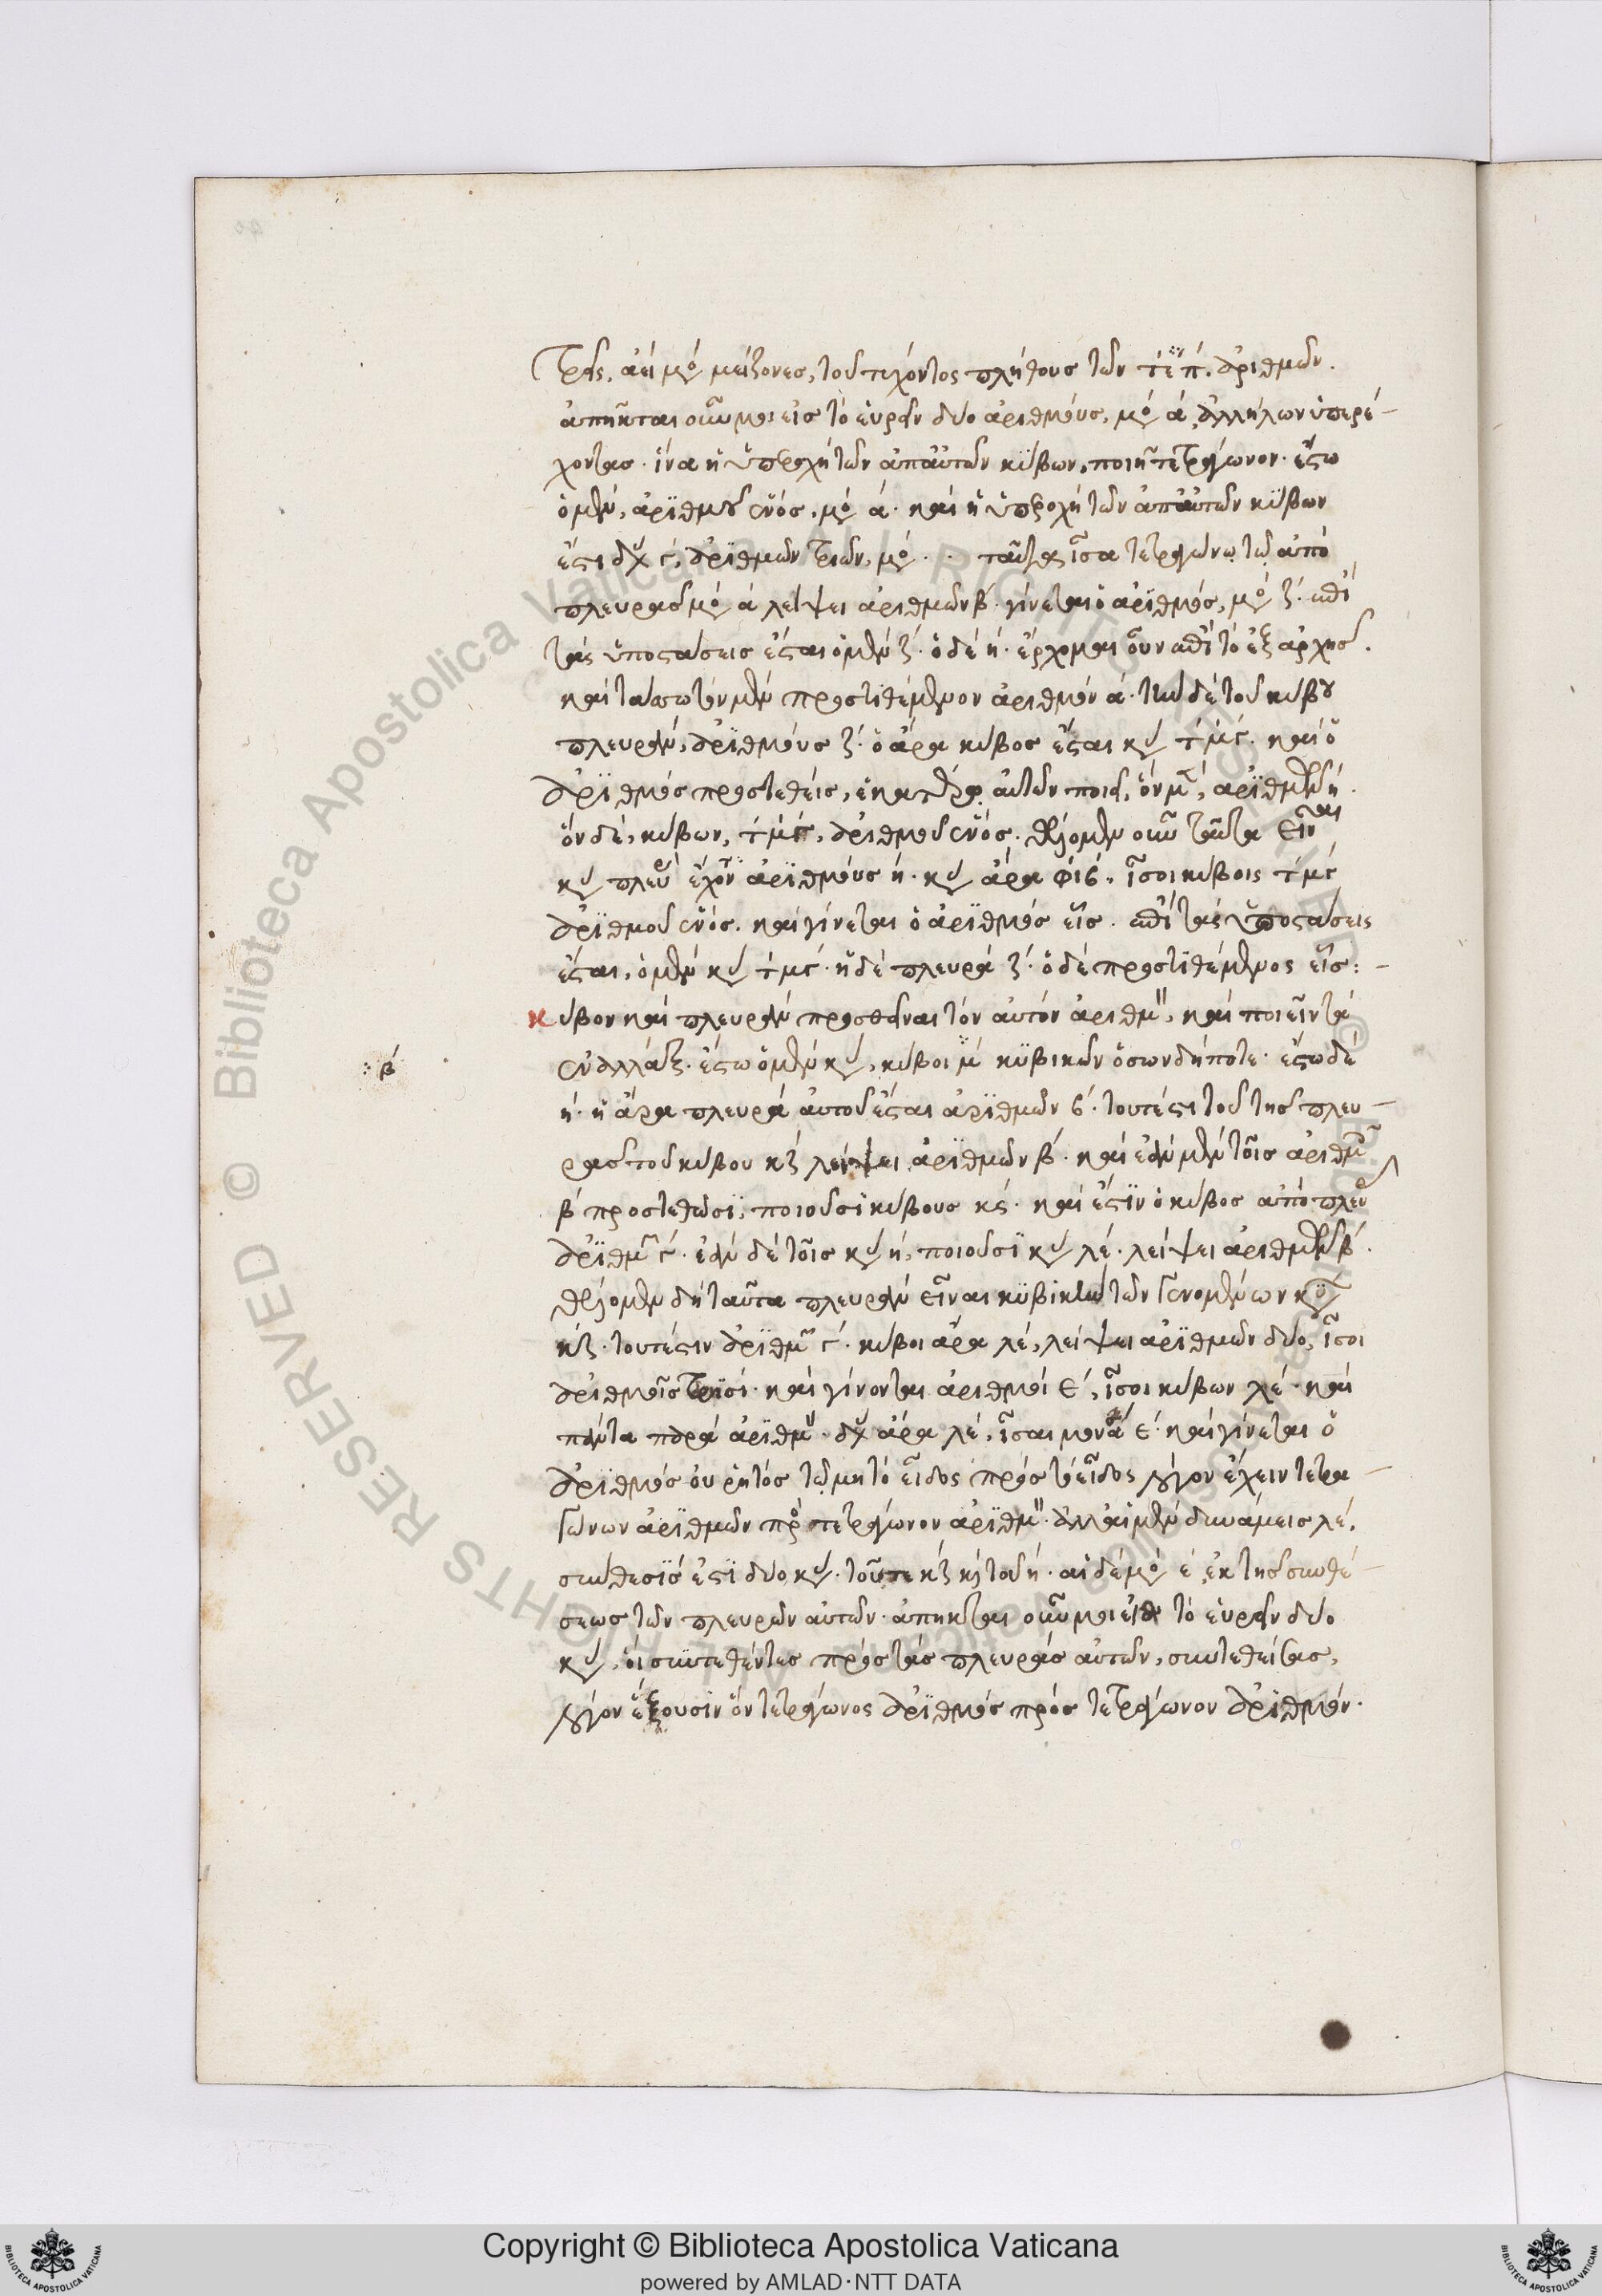 τρεῖς. ἀεὶ μο μείζονες, τοῦ τυχόντος πλήθους τῶν τεπ. ἀριθμῶν.
ἀπῆκται οὖν μοι εἰς τὸ εὑρεῖν δύο ἀριθμοὺς, μο ά ἀλλήλων ὑπερέ-
χοντας. ἵνα ἡ ὑπεροχὴ τῶν ἀπ' αὐτῶν κύβων, ποιῇ τετράγωνον. ἔστω
ὁ μὲν, ἀριθμοῦ ἑνός, μο ά. καὶ ἡ ὑπεροχὴ τῶν ἀπ' αὐτῶν κύβων
ἐστι δυ γ, ἀριθμῶν τριῶν, μο . . ταῦτα ἴσα τετραγώνῳ τῷ ἀπὸ
πλευρᾶς μο ά λείψει ἀριθμῶν β. γίνεται ὁ ἀριθμός, μο ζ. ἐπὶ
τὰς ὑποστάσεις ἔσται ὁ μὲν ζ. ὁ δὲ ή. ἔρχομαι οὖν ἐπὶ τὸ ἐξ ἀρχῆς.
καὶ τάσσω τὸν μὲν προστιθέμενον ἀριθμὸν ά. τὴν δὲ τοῦ κύβου
πλευρὰν, ἀριθμοὺς ζ. ὁ ἄρα κύβος ἔσται κυ τμγ. καὶ ὁ
ἀριθμὸς προστεθεὶς, ἑκατέρῳ αὐτῶν ποιεῖ, ὃν μ, ἀριθμῶν ή.
ὃν δὲ, κύβων, τμγ, ἀριθμοῦ ἑνός. θέλομεν οὖν ταῦτα εἶναι
κυ πλευ ἔχον ἀριθμοὺς ή. κυ ἄρα φιβ. ἴσοι κύβοις τμγ
ἀριθμοῦ ἑνός. καὶ γίνεται ὁ ἀριθμὸς εἷς. ἐπὶ τὰς ὑποστάσεις
ἔσται, ὁ μὲν κυ τμγ. ἡ δὲ πλευρά ζ. ὁ δὲ προστιθέμενος εἷς:-
κύβον καὶ πλευρὰν προσθεῖναι τὸν αὐτὸν ἀριθμ, καὶ ποιεῖν τὰ
:β
ἐναλλάξ. ἔστω ὁ μὲν κυ, κύβοι μ κυβικῶν ὅσων δήποτε. ἔστω δὲ
ή. ἡ ἄρα πλευρὰ αὐτοῦ ἔσται ἀριθμῶν β. τουτέστι τοῦ τῆς πλευ-
ρᾶς τοῦ κύβου κζ λείψει ἀριθμῶν β. καὶ ἐὰν μὲν τοῖς ἀριθμ
β προστεθῶσι, ποιοῦσι κύβους κζ. καὶ ἐστὶν ὁ κύβος ἀπὸ πλευ
ἀριθμ γ. ἐὰν δὲ τοῖς κυ ή, ποιοῦσι κυ λέ. λείψει ἀριθμῶν β.
θέλομεν δὴ ταῦτα πλευρὰν εἶναι κυβικὴν τῶν γενομένων κυ
κζ. τουτέστιν ἀριθμ γ. κύβοι ἄρα λέ, λείψει ἀριθμῶν δύο, ἴσοι
ἀριθμοῖς τρισί. καὶ γίνονται ἀριθμοί έ, ἴσοι κύβων λέ. καὶ
πάντα παρὰ ἀριθμ. δυ ἄρα λέ, ἴσαι μονα έ. καὶ γίνεται ὁ
ἀριθμὸς οὐ ῥητός τῷ μὴ τὸ εἶδος πρὸς τὸ εἶδος λόγον ἔχειν τετρα-
γώνων ἀριθμῶν πρὸς τετράγωνον ἀριθμ. ἀλλ' αἱ μὲν δυνάμεις λέ,
συνθεσίς ἐστι δύο κυ. τοῦτε κζ καὶ τοῦ ή. αἱ δὲ μο έ ἐκ τῆς συνθέ-
σεως τῶν πλευρῶν αὐτῶν. ἀπῆκται οὖν μοι εἰς τὸ εὑρεῖν δύο
κυ, οἱ συντεθέντες πρὸς τὰς πλευρὰς αὐτῶν, συντεθείσας,
λόγον ἕξουσιν ὃν τετράγωνος ἀριθμὸς πρὸς τετράγωνον ἀριθμόν.
Copyright © Biblioteca Apostolica Vaticana
powered by AMLAD·NTT DATA